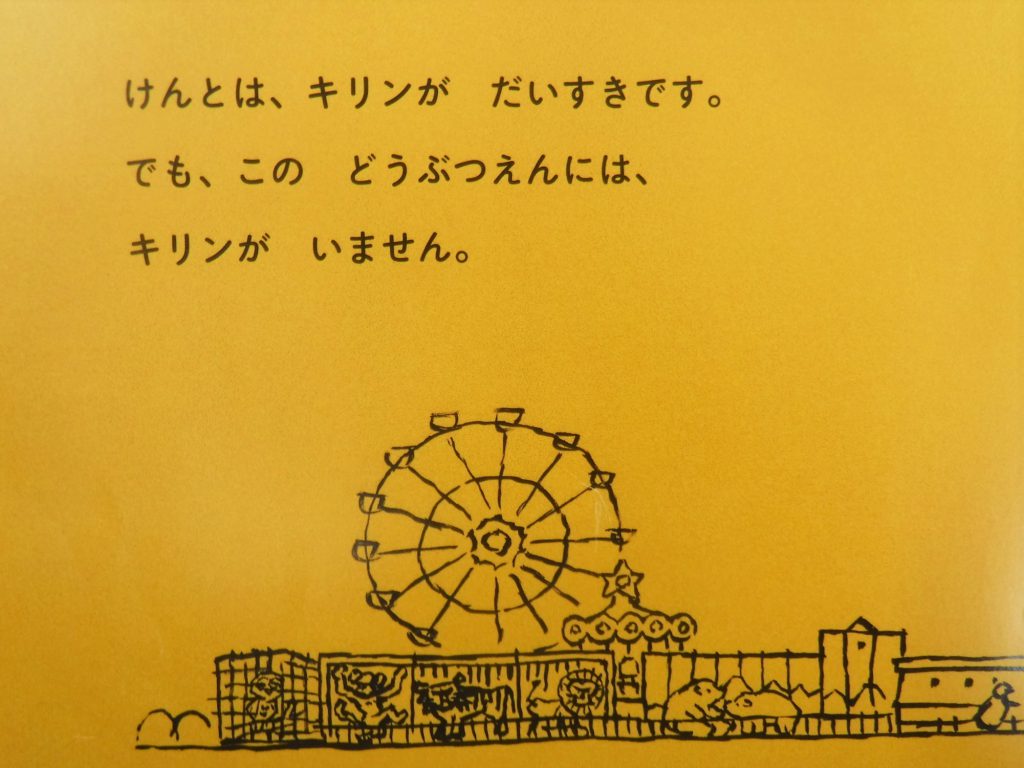 けんとは、キリンが　だいすきです。
でも、この　どうぶつえんには、
キリンが　いません。